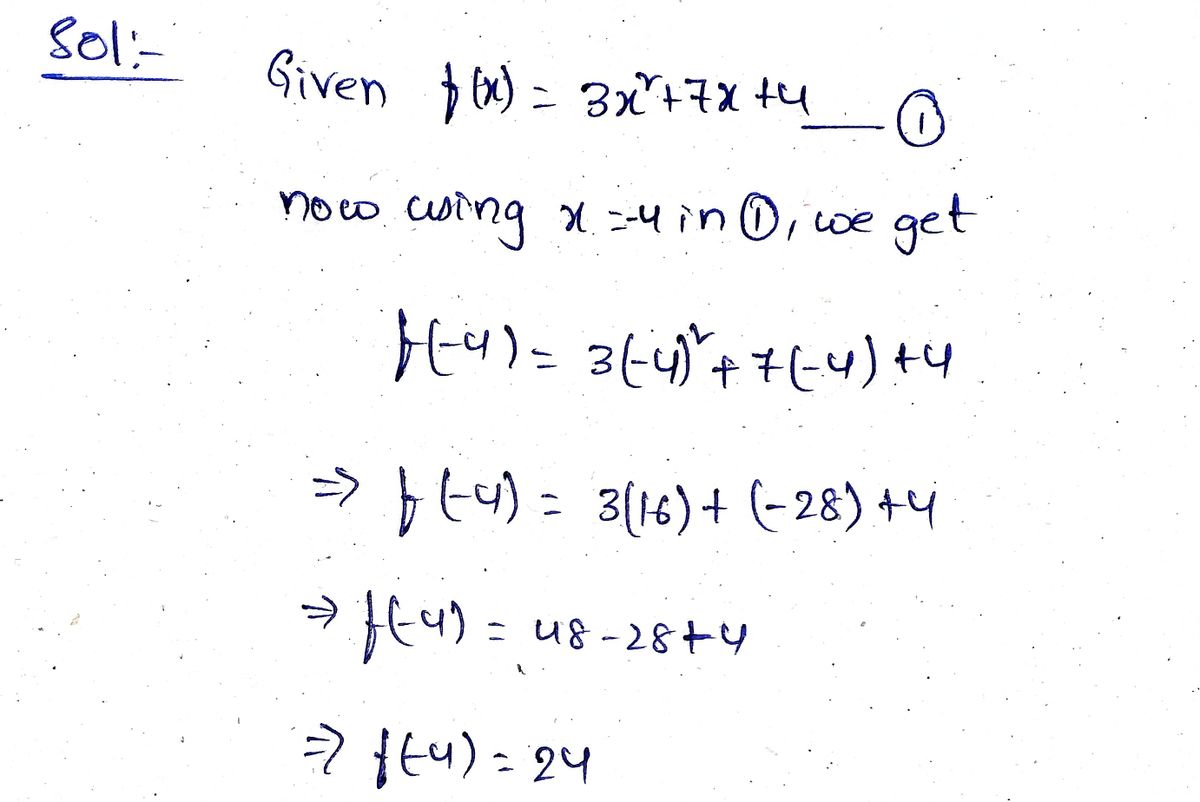 Sol:-
Given f(x) = 3x²+7x+4 ___ ①
now using x=-4 in ①, we get
f(-4) = 3(-4)² + 7(-4) +4
⇒ f(-4) = 3(16) + (-28) +4
⇒ f(-4) = 48-28+4
⇒ f(-4) = 24